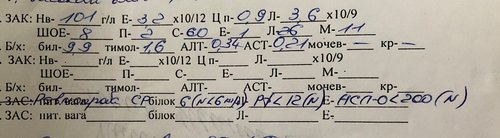 . ЗАК: Нв- 101 г/л Е- 3,2 х10/12 Ц п- 0,9 Л- 3,6 х10/9
ШОЕ- 8 П- 2 С- 60 Е- 1 Л- 26 М- 11
. Б/х: бил- 9,9 тимол- 1,6 АЛТ- 0,34 АСТ- 0,21 мочев- — кр- —
. ЗАК: Нв- г/л Е- х10/12 Ц п- Л- х10/9
ШОЕ- П- С- Е- Л- М-
. Б/х: бил- тимол- АЛТ- АСТ- мочев- кр-
ЗАС: СРбілок 6 (N<6 РФ<12 (N) АСЛ-О<200 (N)
ЗАС: пит. вага білок Л- Е-